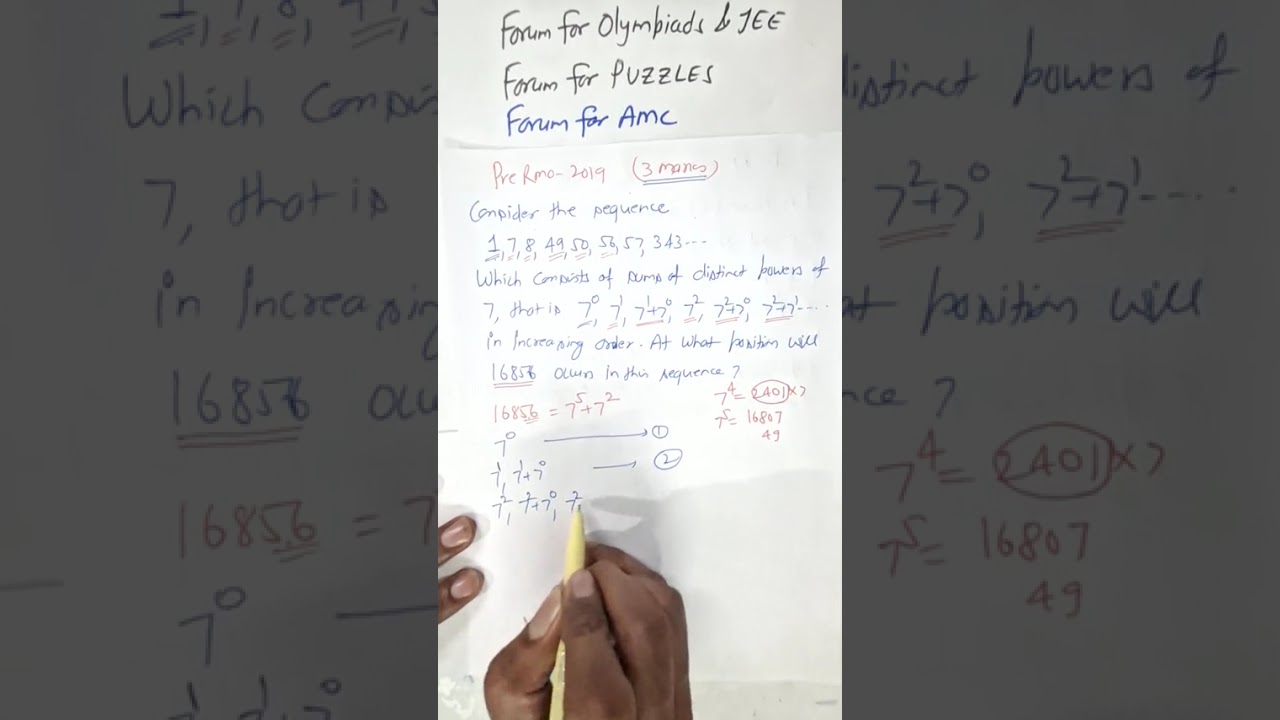 Forum for Olymbiads & JEE
Forum for PUZZLES
Forum for AMC
Pre Rmo-2019 (3 marks)
Consider the sequence
1, 7, 8, 49, 50, 56, 57, 343...
Which consists of sums of distinct powers of
7, that is 7⁰, 7¹, 7¹+7⁰, 7², 7²+7⁰, 7²+7¹....
in increasing order. At what position will
16856 occurs in this sequence?
16856 = 7⁵+7²
7⁴ = 2401×7
7⁵ = 16807
49
7⁰ → ①
7¹, 7¹+7⁰ → ②
7², 7²+7⁰, 7²